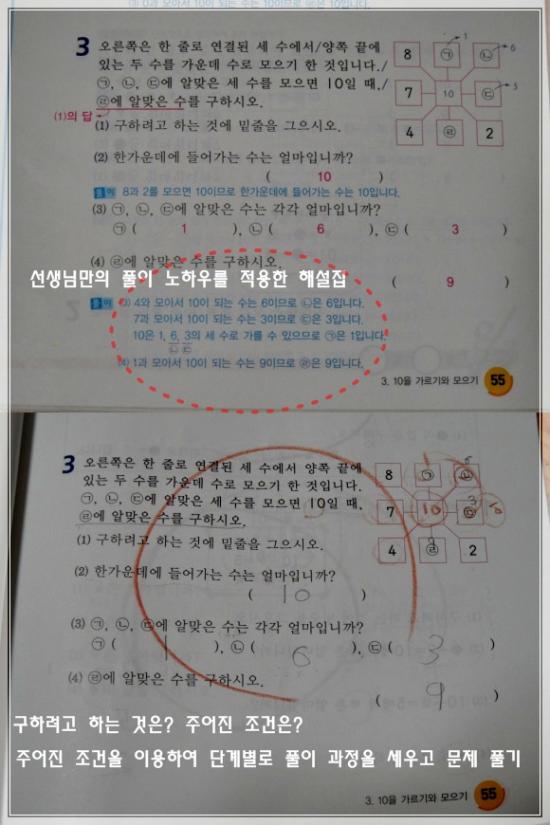 3 오른쪽은 한 줄로 연결된 세 수에서/양쪽 끝에
있는 두 수를 가운데 수로 모으기 한 것입니다./
㉠, ㉡, ㉢에 알맞은 세 수를 모으면 10일 때,/
㉣에 알맞은 수를 구하시오.
8 ㉠ ㉡
7 10 ㉢
4 ㉣ 2
1
6
3
(1)의 답
(1) 구하려고 하는 것에 밑줄을 그으시오.
(2) 한가운데에 들어가는 수는 얼마입니까?
( 10 )
풀이 8과 2를 모으면 10이므로 한가운데에 들어가는 수는 10입니다.
(3) ㉠, ㉡, ㉢에 알맞은 수는 각각 얼마입니까?
㉠ ( 1 ), ㉡ ( 6 ), ㉢ ( 3 )
(4) ㉣에 알맞은 수를 구하시오.
( 9 )
선생님만의 풀이 노하우를 적용한 해설집
풀이 (3) 4와 모아서 10이 되는 수는 6이므로 ㉡은 6입니다.
7과 모아서 10이 되는 수는 3이므로 ㉢은 3입니다.
10은 1, 6, 3의 세 수로 가를 수 있으므로 ㉠은 1입니다.
㉡ ㉢
(4) 1과 모아서 10이 되는 수는 9이므로 ㉣은 9입니다.
3. 10을 가르기와 모으기 55
3 오른쪽은 한 줄로 연결된 세 수에서 양쪽 끝에
있는 두 수를 가운데 수로 모으기 한 것입니다.
㉠, ㉡, ㉢에 알맞은 세 수를 모으면 10일 때,
㉣에 알맞은 수를 구하시오.
8 ㉠ ㉡
7 10 ㉢
4 ㉣ 2
(1) 구하려고 하는 것에 밑줄을 그으시오.
(2) 한가운데에 들어가는 수는 얼마입니까?
( 10 )
(3) ㉠, ㉡, ㉢에 알맞은 수는 각각 얼마입니까?
㉠ ( 1 ), ㉡ ( 6 ), ㉢ ( 3 )
(4) ㉣에 알맞은 수를 구하시오.
( 9 )
구하려고 하는 것은? 주어진 조건은?
주어진 조건을 이용하여 단계별로 풀이 과정을 세우고 문제 풀기
3. 10을 가르기와 모으기 55